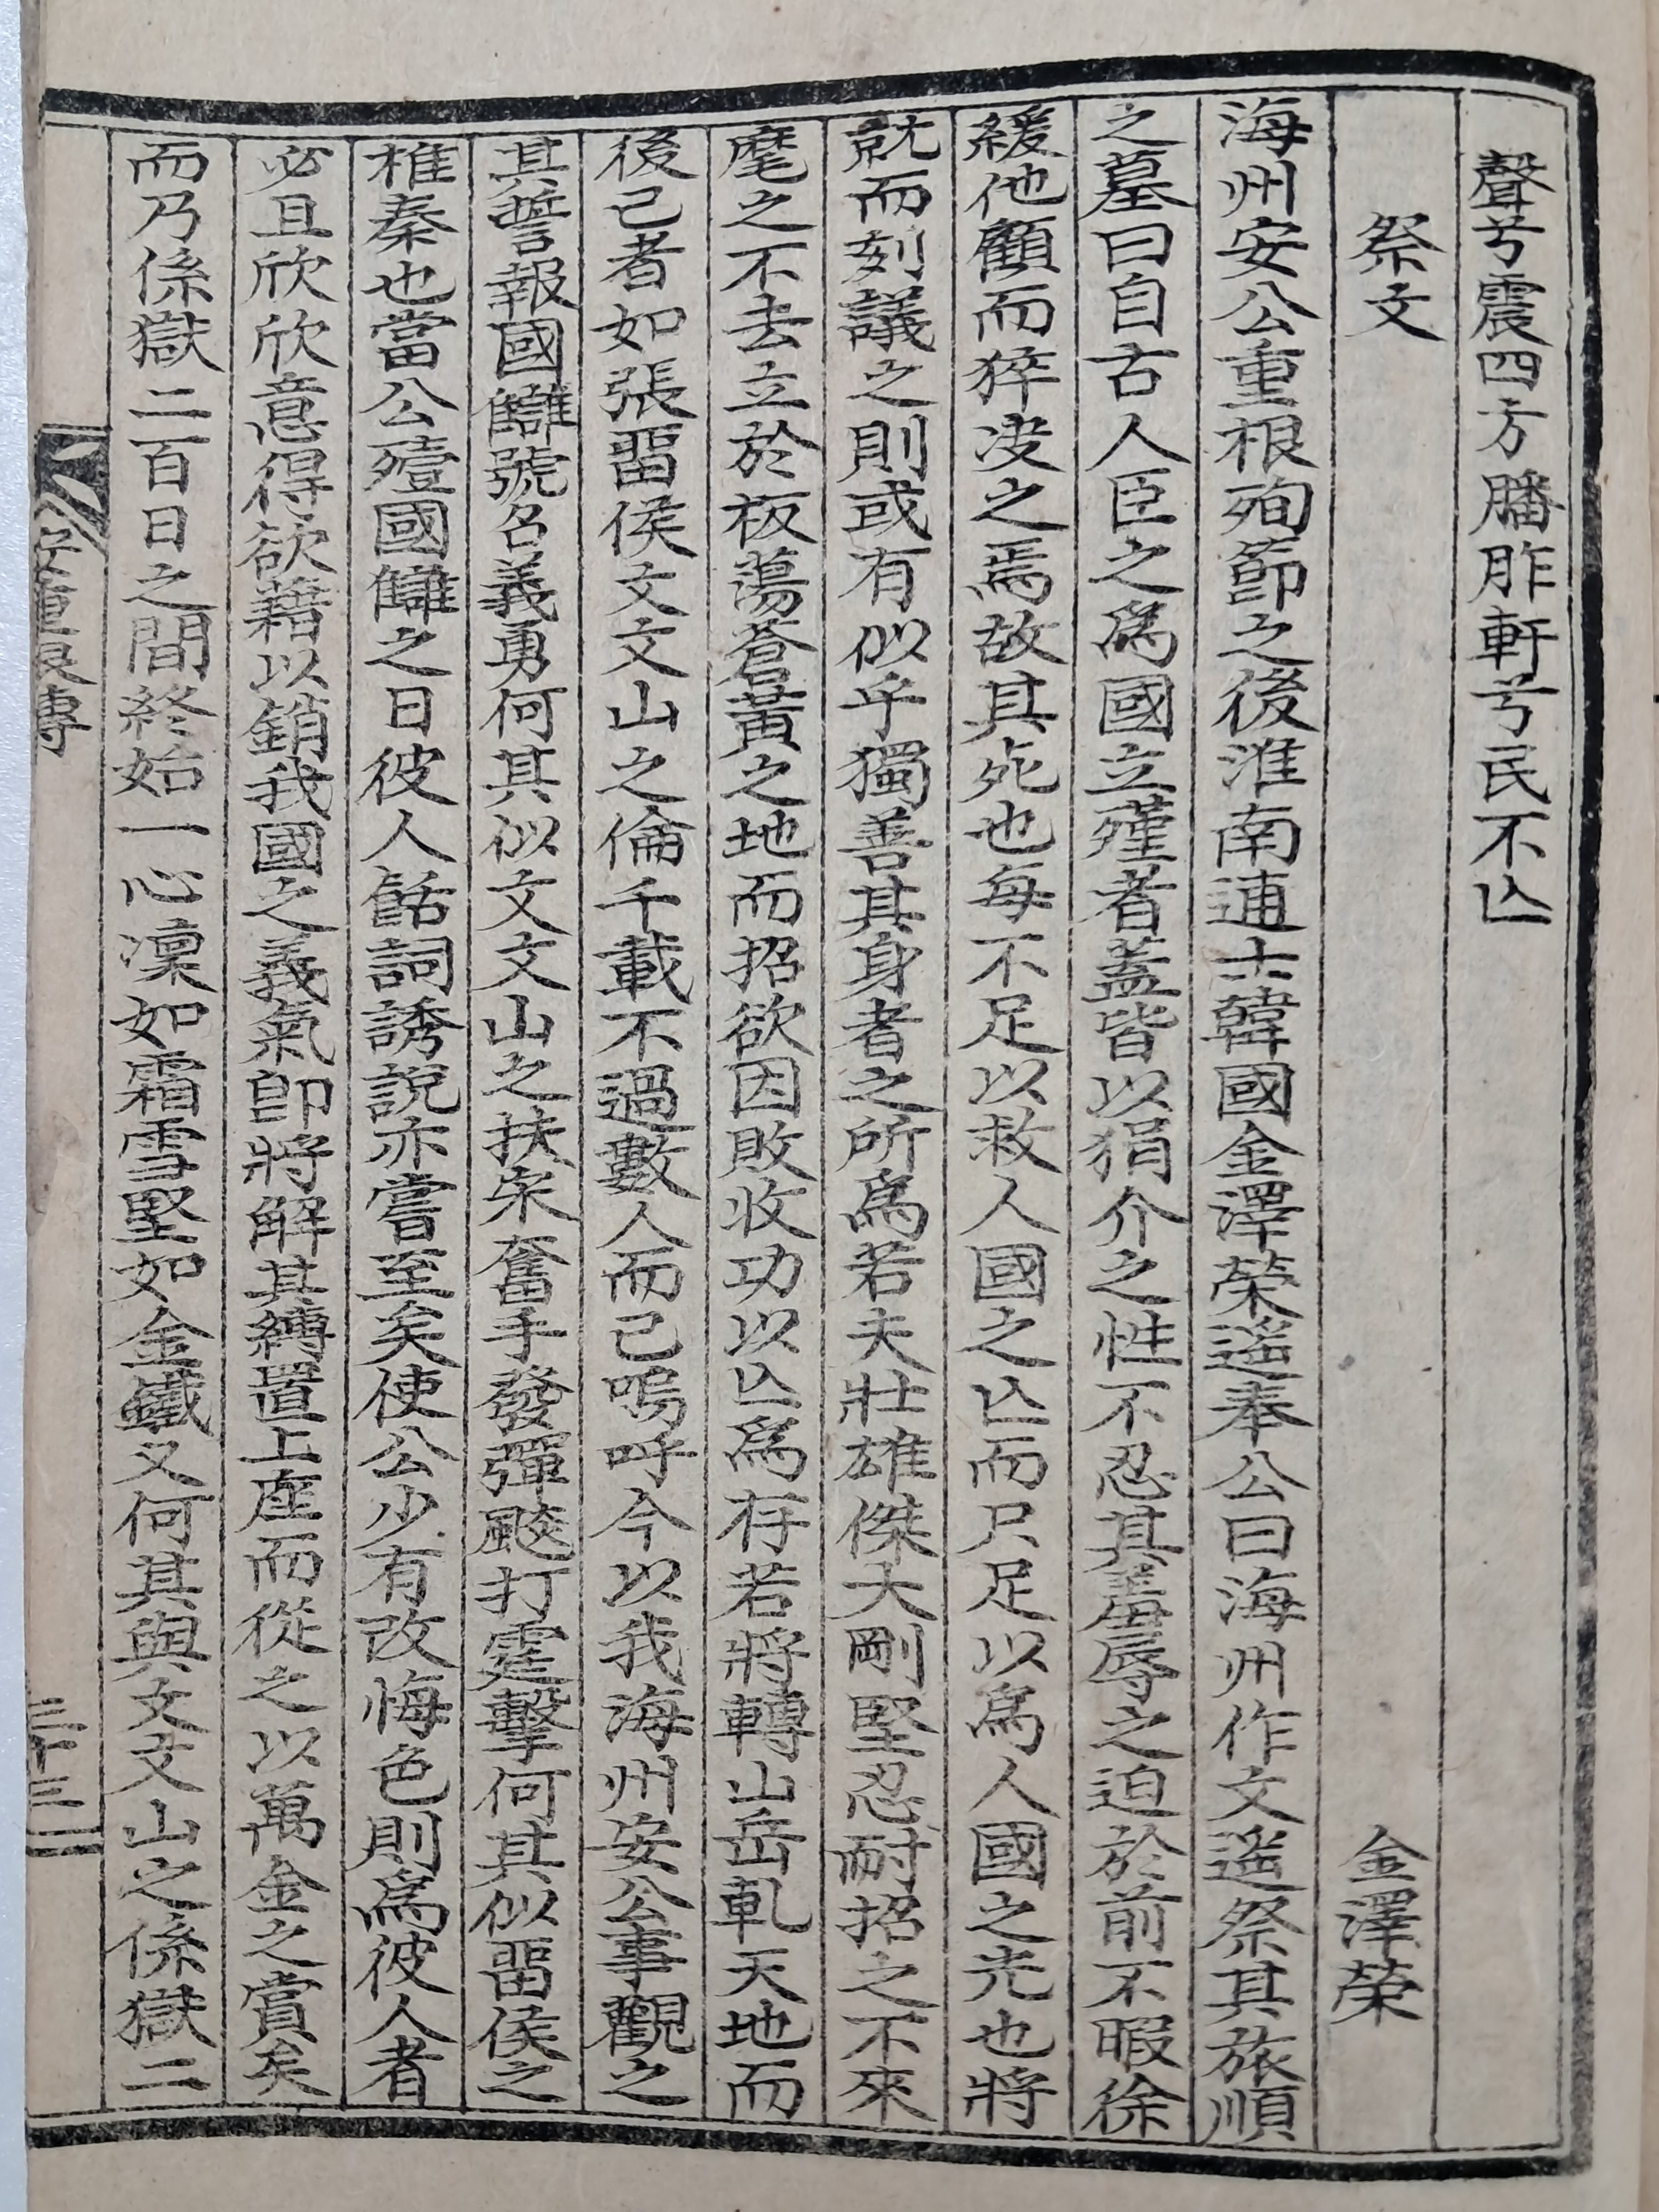 聲兮震四方膰胙軒兮民不亾
祭文
金澤榮
海州安公重根殉節之後淮南逋士韓國金澤榮遥奉公曰海州作文遥祭其旅順
之墓曰自古人臣之爲國立殣者蓋皆以狷介之性不忍其羞辱之迫於前不暇徐
緩他顧而猝决之焉故其死也每不足以救人國之亾而只足以爲人國之光也將
就而刻議之則或有似乎獨善其身者之所爲若夫壯雄傑大剛堅忍耐招之不來
麾之不去立於板蕩蒼黃之地而招欲因敗收功以亾爲存若將轉山岳軋天地而
後己者如張畱侯文文山之倫千載不過數人而己嗚呼今以我海州安公事觀之
其誓報國讎號名義勇何其似文文山之扶宋奮手發彈颷打霆擊何其似畱侯之
椎秦也當公殪國讎之日彼人餂詞誘說亦嘗至矣使公少有改悔色則爲彼人者
必且欣欣意得欲藉以銷我國之義氣卽將解其縛置上座而從之以萬金之賞矣
而乃係獄二百日之間終始一心凜如霜雪堅如金鐵又何其與文文山之係獄二
安重根傳
三十三